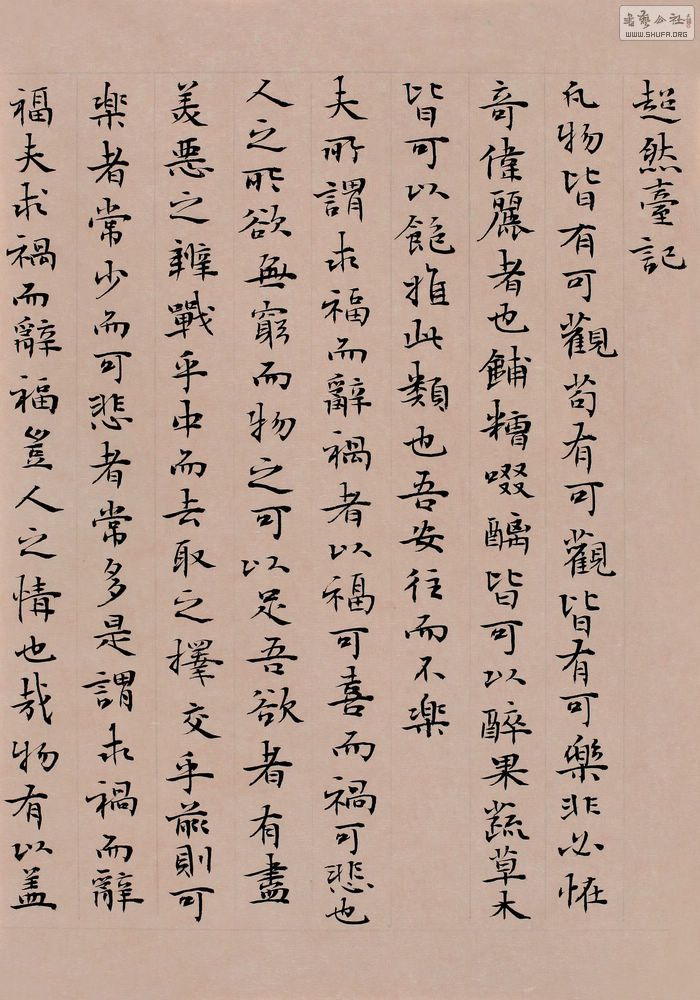 超然臺記
凡物皆有可觀苟有可觀皆有可樂非必怪
奇偉麗者也餔糟啜醨皆可以醉果蔬草木
皆可以飽推此類也吾安往而不樂
夫所謂求福而辭禍者以福可喜而禍可悲也
人之所欲無窮而物之可以足吾欲者有盡
美惡之辨戰乎中而去取之擇交乎前則可
樂者常少而可悲者常多是謂求禍而辭
福夫求禍而辭福豈人之情也哉物有以蓋
WWW.SHUFA.ORG